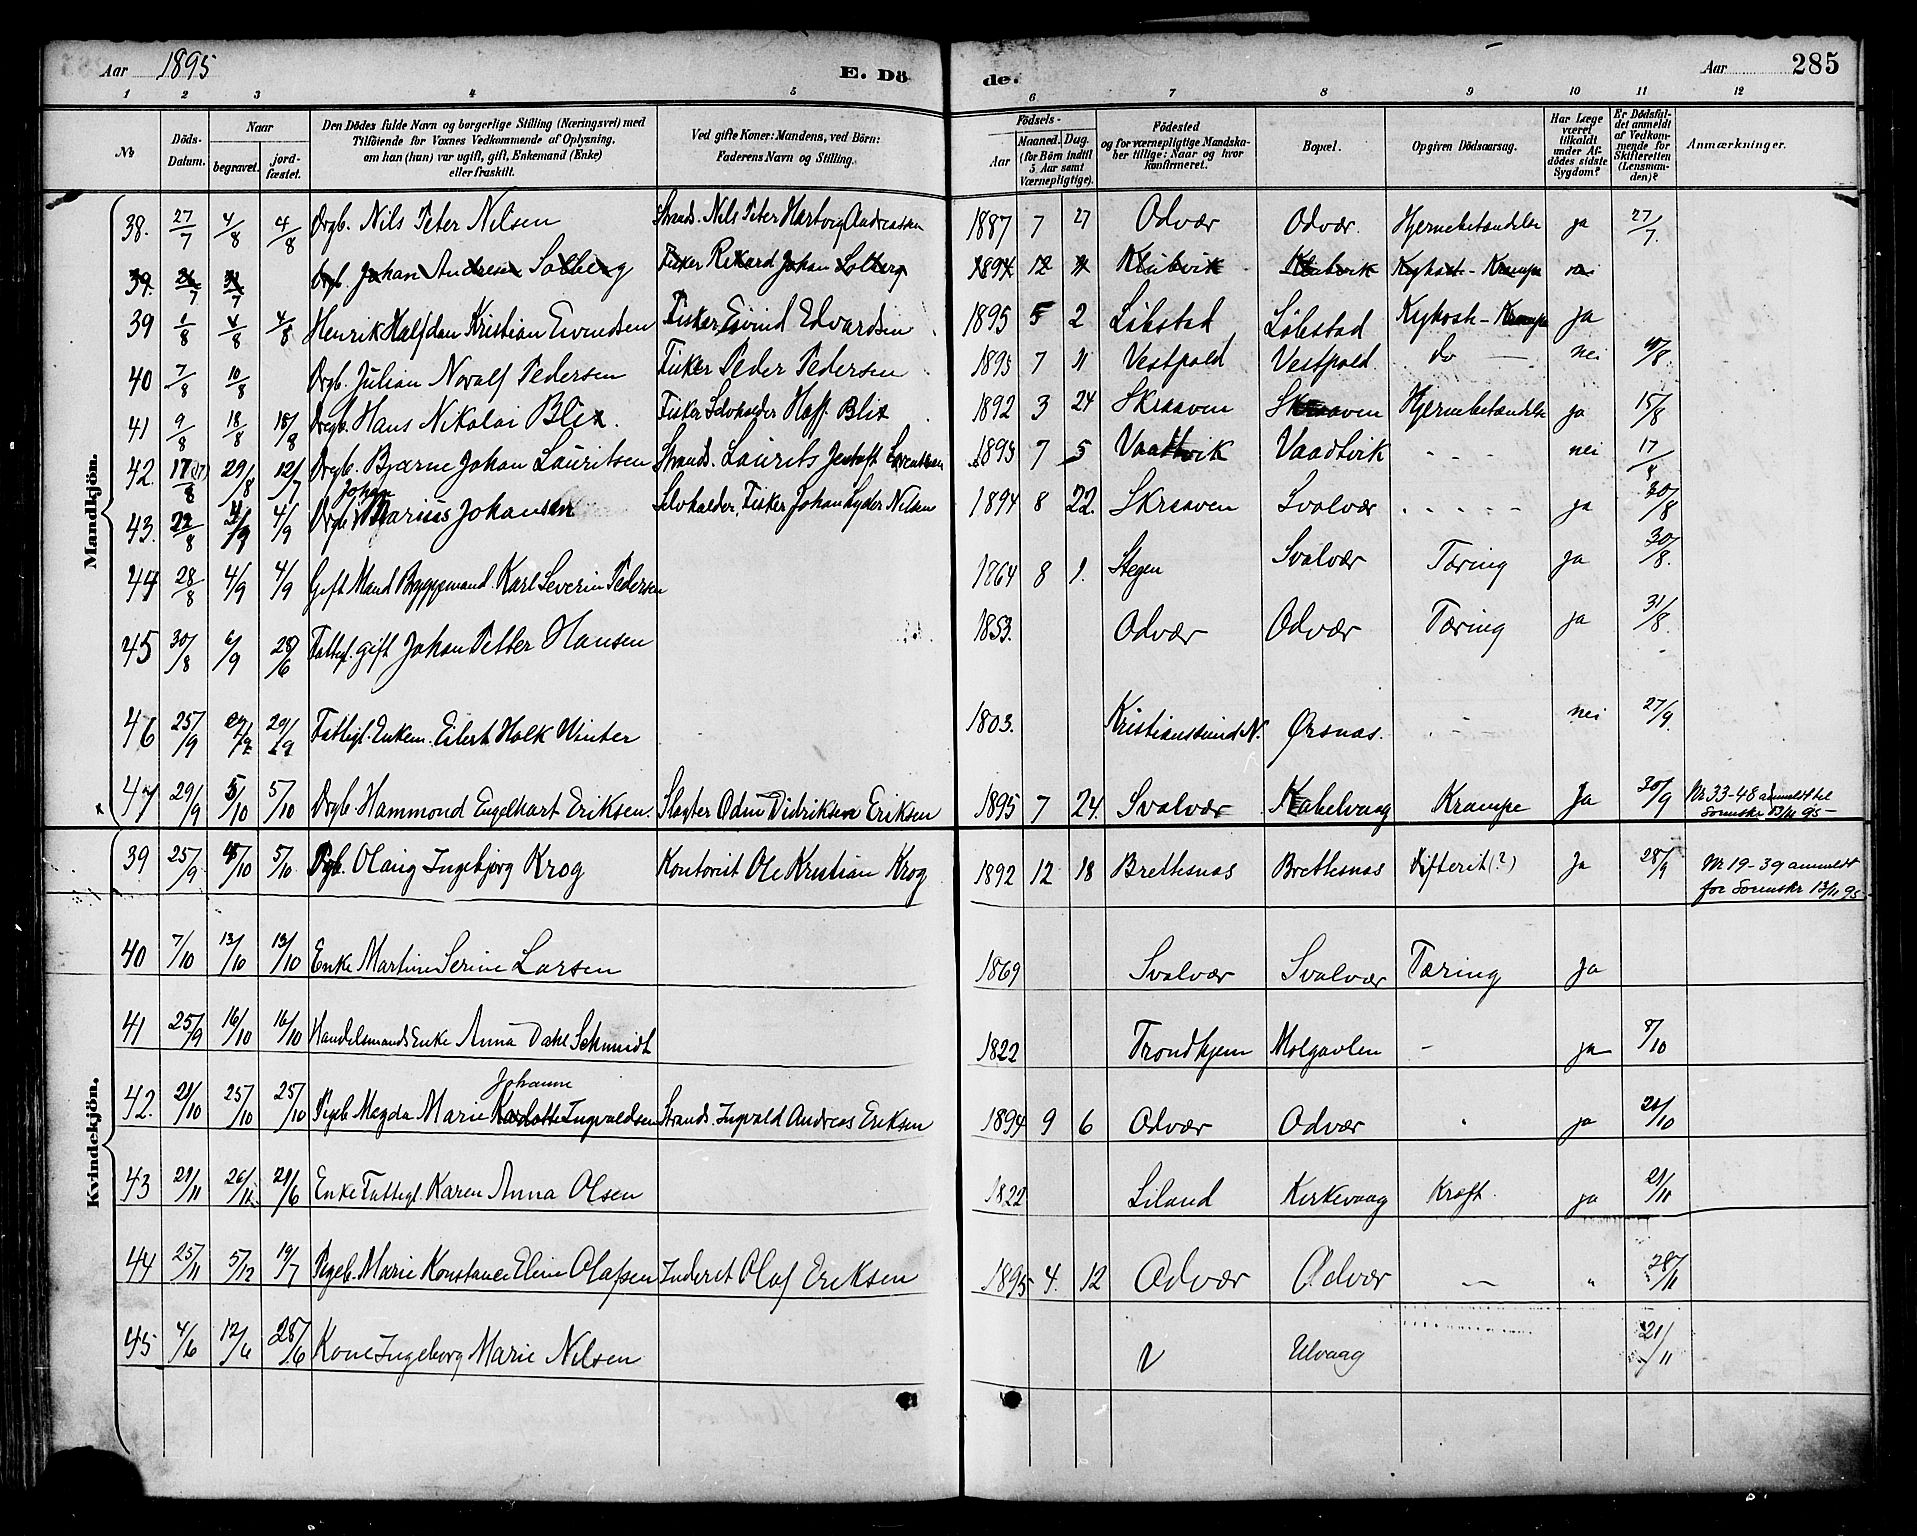 Aar 1895 E. Dö de. Aar 285
1 2 3 4 5 6 7 8 9 10 11 12
No. Döds-Datum. Naar begravet. jordfæstet. Den Dödes fulde Navn og borgerlige Stilling (Næringsvei) med Tilföiende for Voxnes Vedkommende af Oplysning, om han (hun) var ugift, gift, Enkemand (Enke) eller fraskilt. Ved gifte Koner: Mandens, ved Börn: Faderens Navn og Stilling. Födsels- Aar Maaned. Dag. (for Börn indtil 5 Aar samt Værnepligtige). Födested og for værnepligtige Mandskaber tillige: Naar og hvor konfirmeret. Bopæl. Opgiven Dödsaarsag. Har Læge været tilkaldt under Afdödes sidste Sygdom? Er Dödsfaldet anmeldt af Vedkommende for Skifteretten (Lensmanden)? Anmærkninger.
Mandkjön.
38. 27/7 4/8 4/8 Drgb. Nils Peter Nilsen Strands. Nils Peter Hartvig Andreassen 1887 7 27 Odvær Odvær. Hjernebetændelse ja 27/7.
39. 26/7 31/7 Drgb. Johan Andreas Solberg Fisker Rikard Johan Solberg 1894 12 11 Klubvik Klubvik Kighost-Krampe
39 1/8 4/8 4/8 Henrik Halfdan Kristian Eivendsen Fisker Eivind Edvardsen 1895 5 2 Løbstad Løbstad Kighost-Krampe ja
40 7/8 10/8 Drgb. Julian Norulf Pedersen Fisker Peder Pedersen 1895 7 11 Vestpold Vestpold do — nei 10/8.
41 9/8 18/8 18/8 Drgb. Hans Nikolai Blix. Fisker Selvholder Haff Blix 1892 3 24 Skraaven Skraaven Hjernebetændelse ja 15/8
42. 17/8 29/8 12/7 Drgb. Bjarne Johan Lauritsen Strands. Laurits Jentoft Lorentsen 1895 7 5 Vaadtvik Vaadtvik - - - nei 17/8
43. 22/8 4/9 4/9 Drgb. Johan Marius Johansen Selvholder, Fisker Johan Lyder Nilsen 1894 8 22. Skraaven Svolvær - - - - - ja 30/8
44 28/8 4/9 4/9 Gift Mand Byggemand. Karl Severin Pedersen 1864 8 1. Stegen Svolvær Tæring ja 30/8.
45 30/8 6/9 28/6 Fattigl. gift Johan Petter Hansen 1853. Odvær Odvær Tæring ja 31/8.
46 25/9 29/9 Fattigl. Enkem. Eilert Holk Winter 1803. Kristianssund N. Ørsnæs. - - - nei 27/9.
47 29/9 5/10 5/10 Drgb. Hammond Engelhart Eriksen. Slagter Odin Didriksen Eriksen 1895 7 24. Svolvær Kabelvaag Krampe Ja 30/9 Nr 33-48 anmeldt til Sorenskr 13/11 95 —
Kvindekjön.
39 25/9 5/10 5/10 Pgb. Olaug Ingebjørg Krog Kontorist Ole Kristian Krog 1892 12 18 Brettesnæs Brettesnæs Difterit (?) Ja 28/9 Nr 19-39 anmeldt for Sorenskr 13/11 95 -
40 7/10 13/10 13/10 Enke Martine Serine Larsen 1869 Svolvær Svolvær Tæring Ja
41 25/9 16/10 16/10 Handelsmands Enke Anna Dahl Schmidt 1822 Trondhjem Molgavlen - ja 8/10
42. 21/10 25/10 25/10 Pigeb. Magda Marie Karlotte Johanne Ingvaldsen Strands. Ingvald Andreas Eriksen 1894 9 6 Odvær Odvær ja 21/10
43 21/11 26/11 21/6 Enke Fattigl. Karen Anna Olsen 1822 Liland Kirkevaag Kræft. ja 21/11
44 25/11 5/12 19/7 Pigeb. Marie Konstance Eline Olafsen Inderst Olaf Eriksen 1895 4. 12 Odvær Odvær — „ 28/11
45 4/6 12/6 28/6 Kone Ingeborg Marie Nilsen Ulvaag 21/11